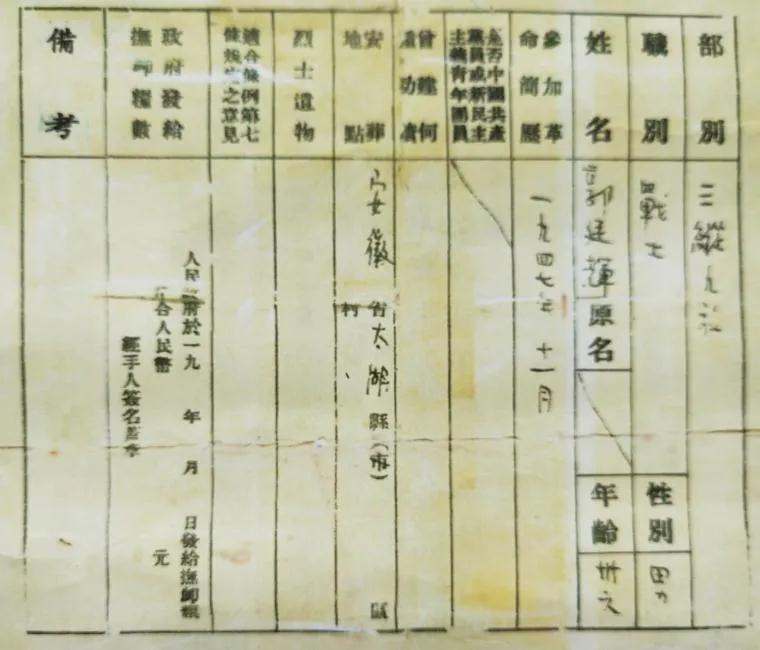 部別
三縱九
職別
戰士
性別
男
姓名
郭廷輝
原名
年齡
卅六
參加革命簡歷
一九四七年十一月
是否中國共產黨員或新民主主義青年團員
曾建何功績
安葬地點
安徽省太湖縣(市)區
村
烈士遺物
適合條例第七條規定之意見
政府發給撫卹糧數
人民政府於一九 年 月 日發給撫卹糧
合人民幣 元
經手人簽名蓋章
備考